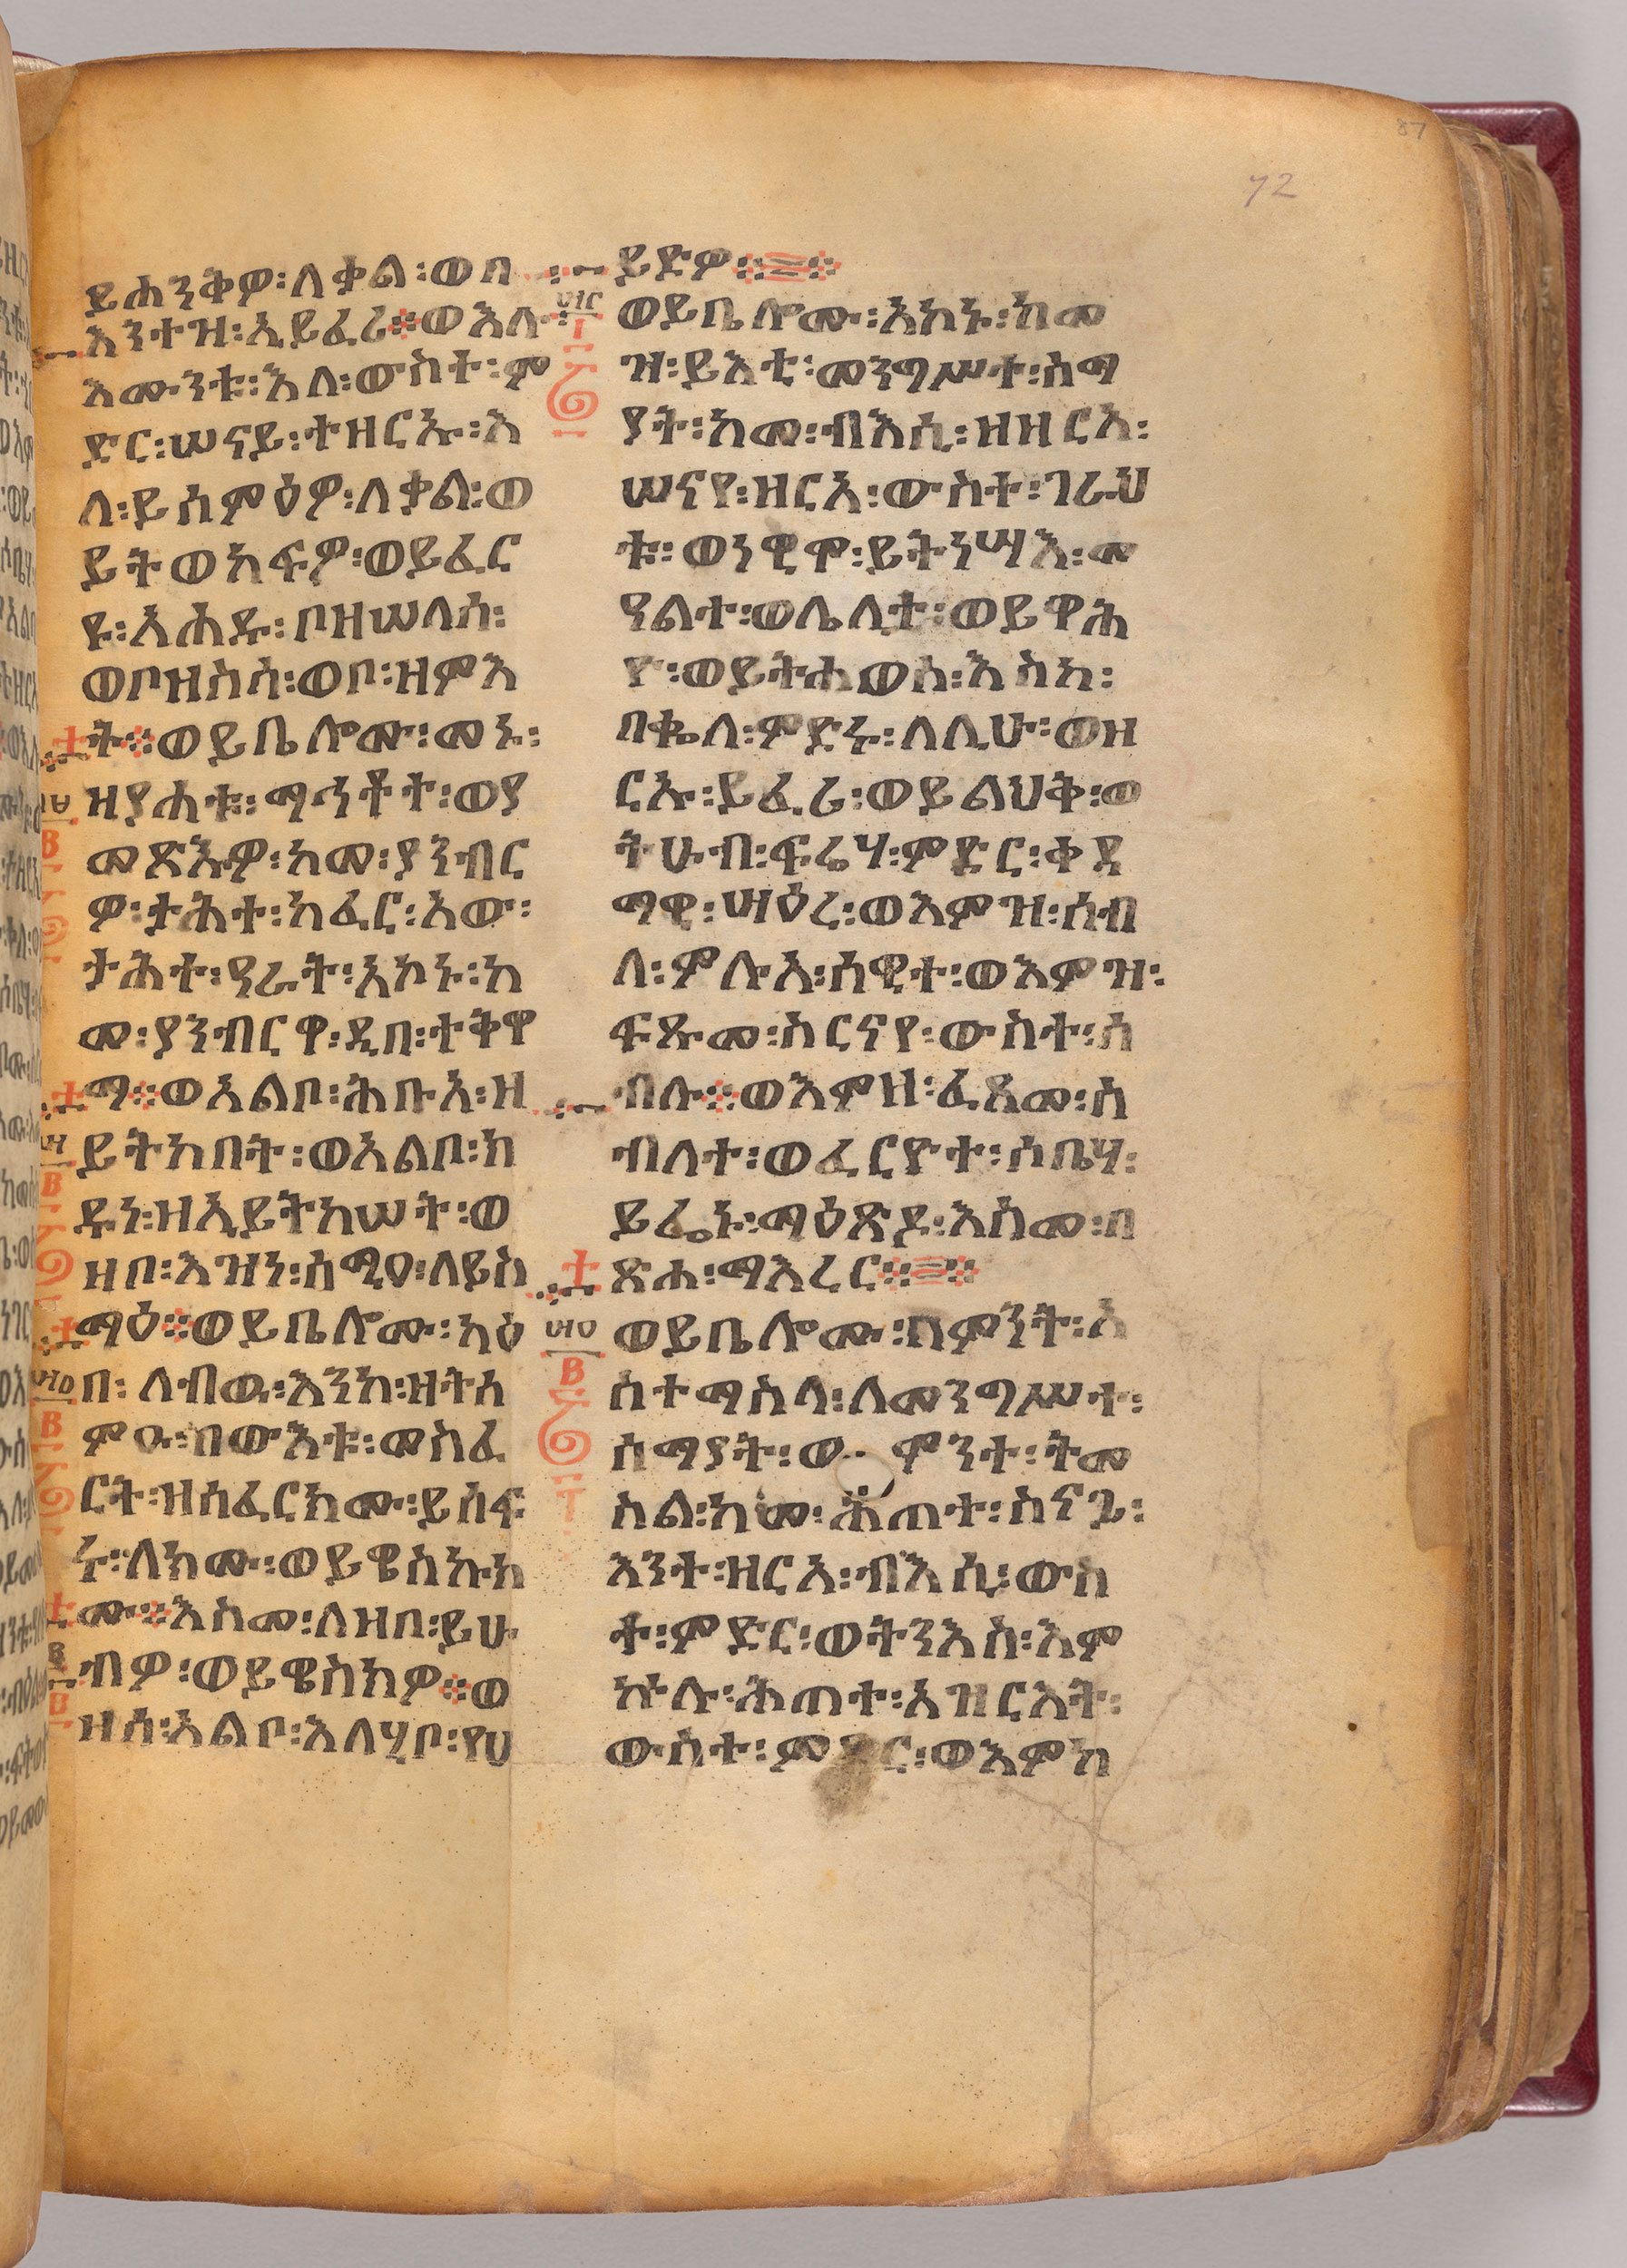 ይሐንቅዎ፡ለቃል፡ወበ
እንተዝ፡ኢይፈሪ፨ወእሉ፡
እሙንቱ፡እለ፡ውስተ፡ም
ድር፡ሠናይ፡ተዘርኡ፡እ
ለ፡ይሰምዕዎ፡ለቃል፡ወ
ይትወከፍዎ፡ወይፈር
ዩ፡አሐዱ፡ቦዘሠላሰ፡
ወቦዘስሳ፡ወቦ፡ዘምእ
ት፨ወይቤሎሙ፡መኑ፡
ዝያሐቱ፡ማኅቶተ፡ወያ
መጽእዎ፡ከመ፡ያንብር
ዎ፡ታሕተ፡ከፈር፡አው፡
ታሕተ፡ዓራት፡አኮኑ፡ከ
መ፡ያንብርዋ፡ዲበ፡ተቅዋ
ማ፨ወአልቦ፡ሕቡእ፡ዘ
ይትከበት፡ወአልቦ፡ክ
ዱን፡ዘኢይትከሠት፡ወ
ዘቦ፡እዝን፡ሰሚዐ፡ለይስ
ማዕ፨ወይቤሎሙ፡ካዕ
በ፡ለብዉ፡እንከ፡ዘትሰ
ምዑ፡በውእቱ፡መስፈ
ርት፡ዘሰፈርክሙ፡ይሰፍ
ሩ፡ለክሙ፡ወይዌስኩክ
ሙ፨እስመ፡ለዘቦ፡ይሁ
ብዎ፡ወይዌስክዎ፨ወ
ዘሰ፡አልቦ፡እለሂቦ፡የሀ
ይድዎ፨፨
ወይቤሎሙ፡አኮኑ፡ከመ
ዝ፡ይእቲ፡መንግሥተ፡ሰማ
ያት፡ከመ፡ብእሲ፡ዘዘርአ፡
ሠናየ፡ዘርአ፡ውስተ፡ገራህ
ቱ፡ወነዊሞ፡ይትነሣእ፡መ
ዓልተ፡ወሌሊተ፡ወይዋሕ
ዮ፡ወይትሐወስ፡እስከ፡
በቈለ፡ምድሩ፡ለሊሁ፡ወዘ
ርኡ፡ይፈሪ፡ወይልህቅ፡ወ
ትሁብ፡ፍሬሃ፡ምድር፡ቀዳ
ማዊ፡ሣዕረ፡ወእምዝ፡ሰብ
ለ፡ምሉእ፡ሰዊተ፡ወእምዝ፡
ፍጹመ፡ስርናየ፡ውስተ፡ሰ
ብሉ፨ወእምዘ፡ፈጸመ፡ሰ
ብለተ፡ወፈርዮተ፡ሶቤሃ፡
ይፌኑ፡ማዕጽደ፡እስመ፡በ
ጽሐ፡ማእረር፨፨
ወይቤሎሙ፡በምንት፡አ
ስተማስላ፡ለመንግሥተ፡
ሰማያት፡ወምንተ፡ትመ
ስል፡ከመ፡ሕጠተ፡ስናፔ፡
እንተ፡ዝርአ፡ብእሲ፡ውስ
ተ፡ምድር፡ወትንእስ፡እም
ኵሉ፡ሕጠተ፡አዝርእት፡
ውስተ፡ምድር፡ወእምከ
72